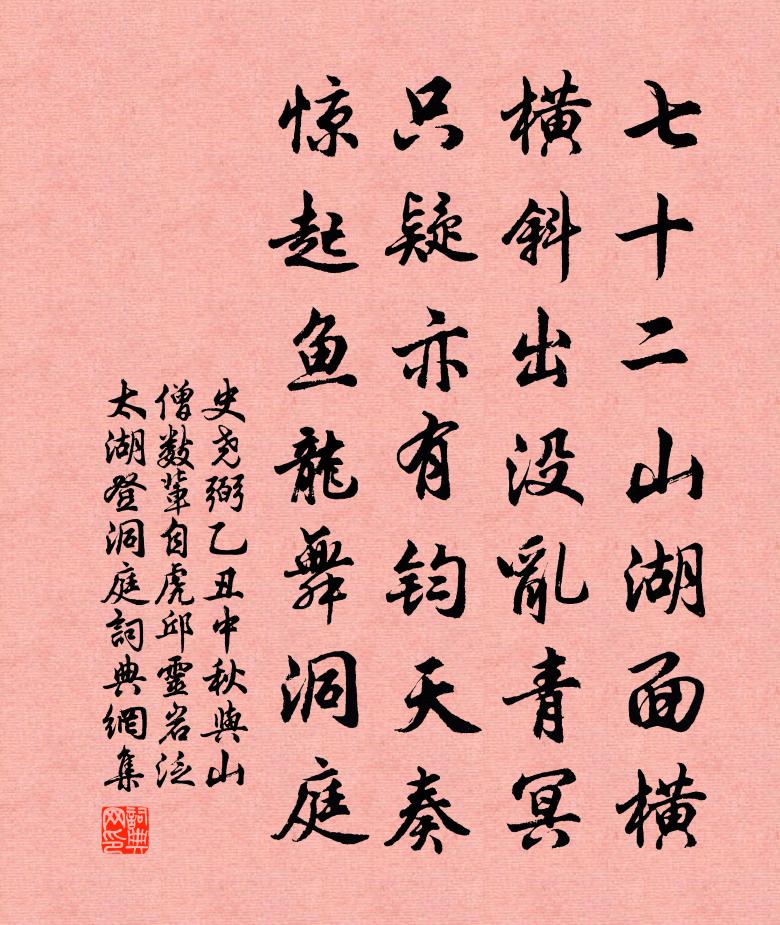 七十二山湖面横
橫斜出没亂青冥
只疑亦有钧天奏
惊起鱼龍舞洞庭
史尧弼乙丑中秋與山
僧数輩自虎邱靈岩泛
太湖登洞庭詞典網集
詞典网印